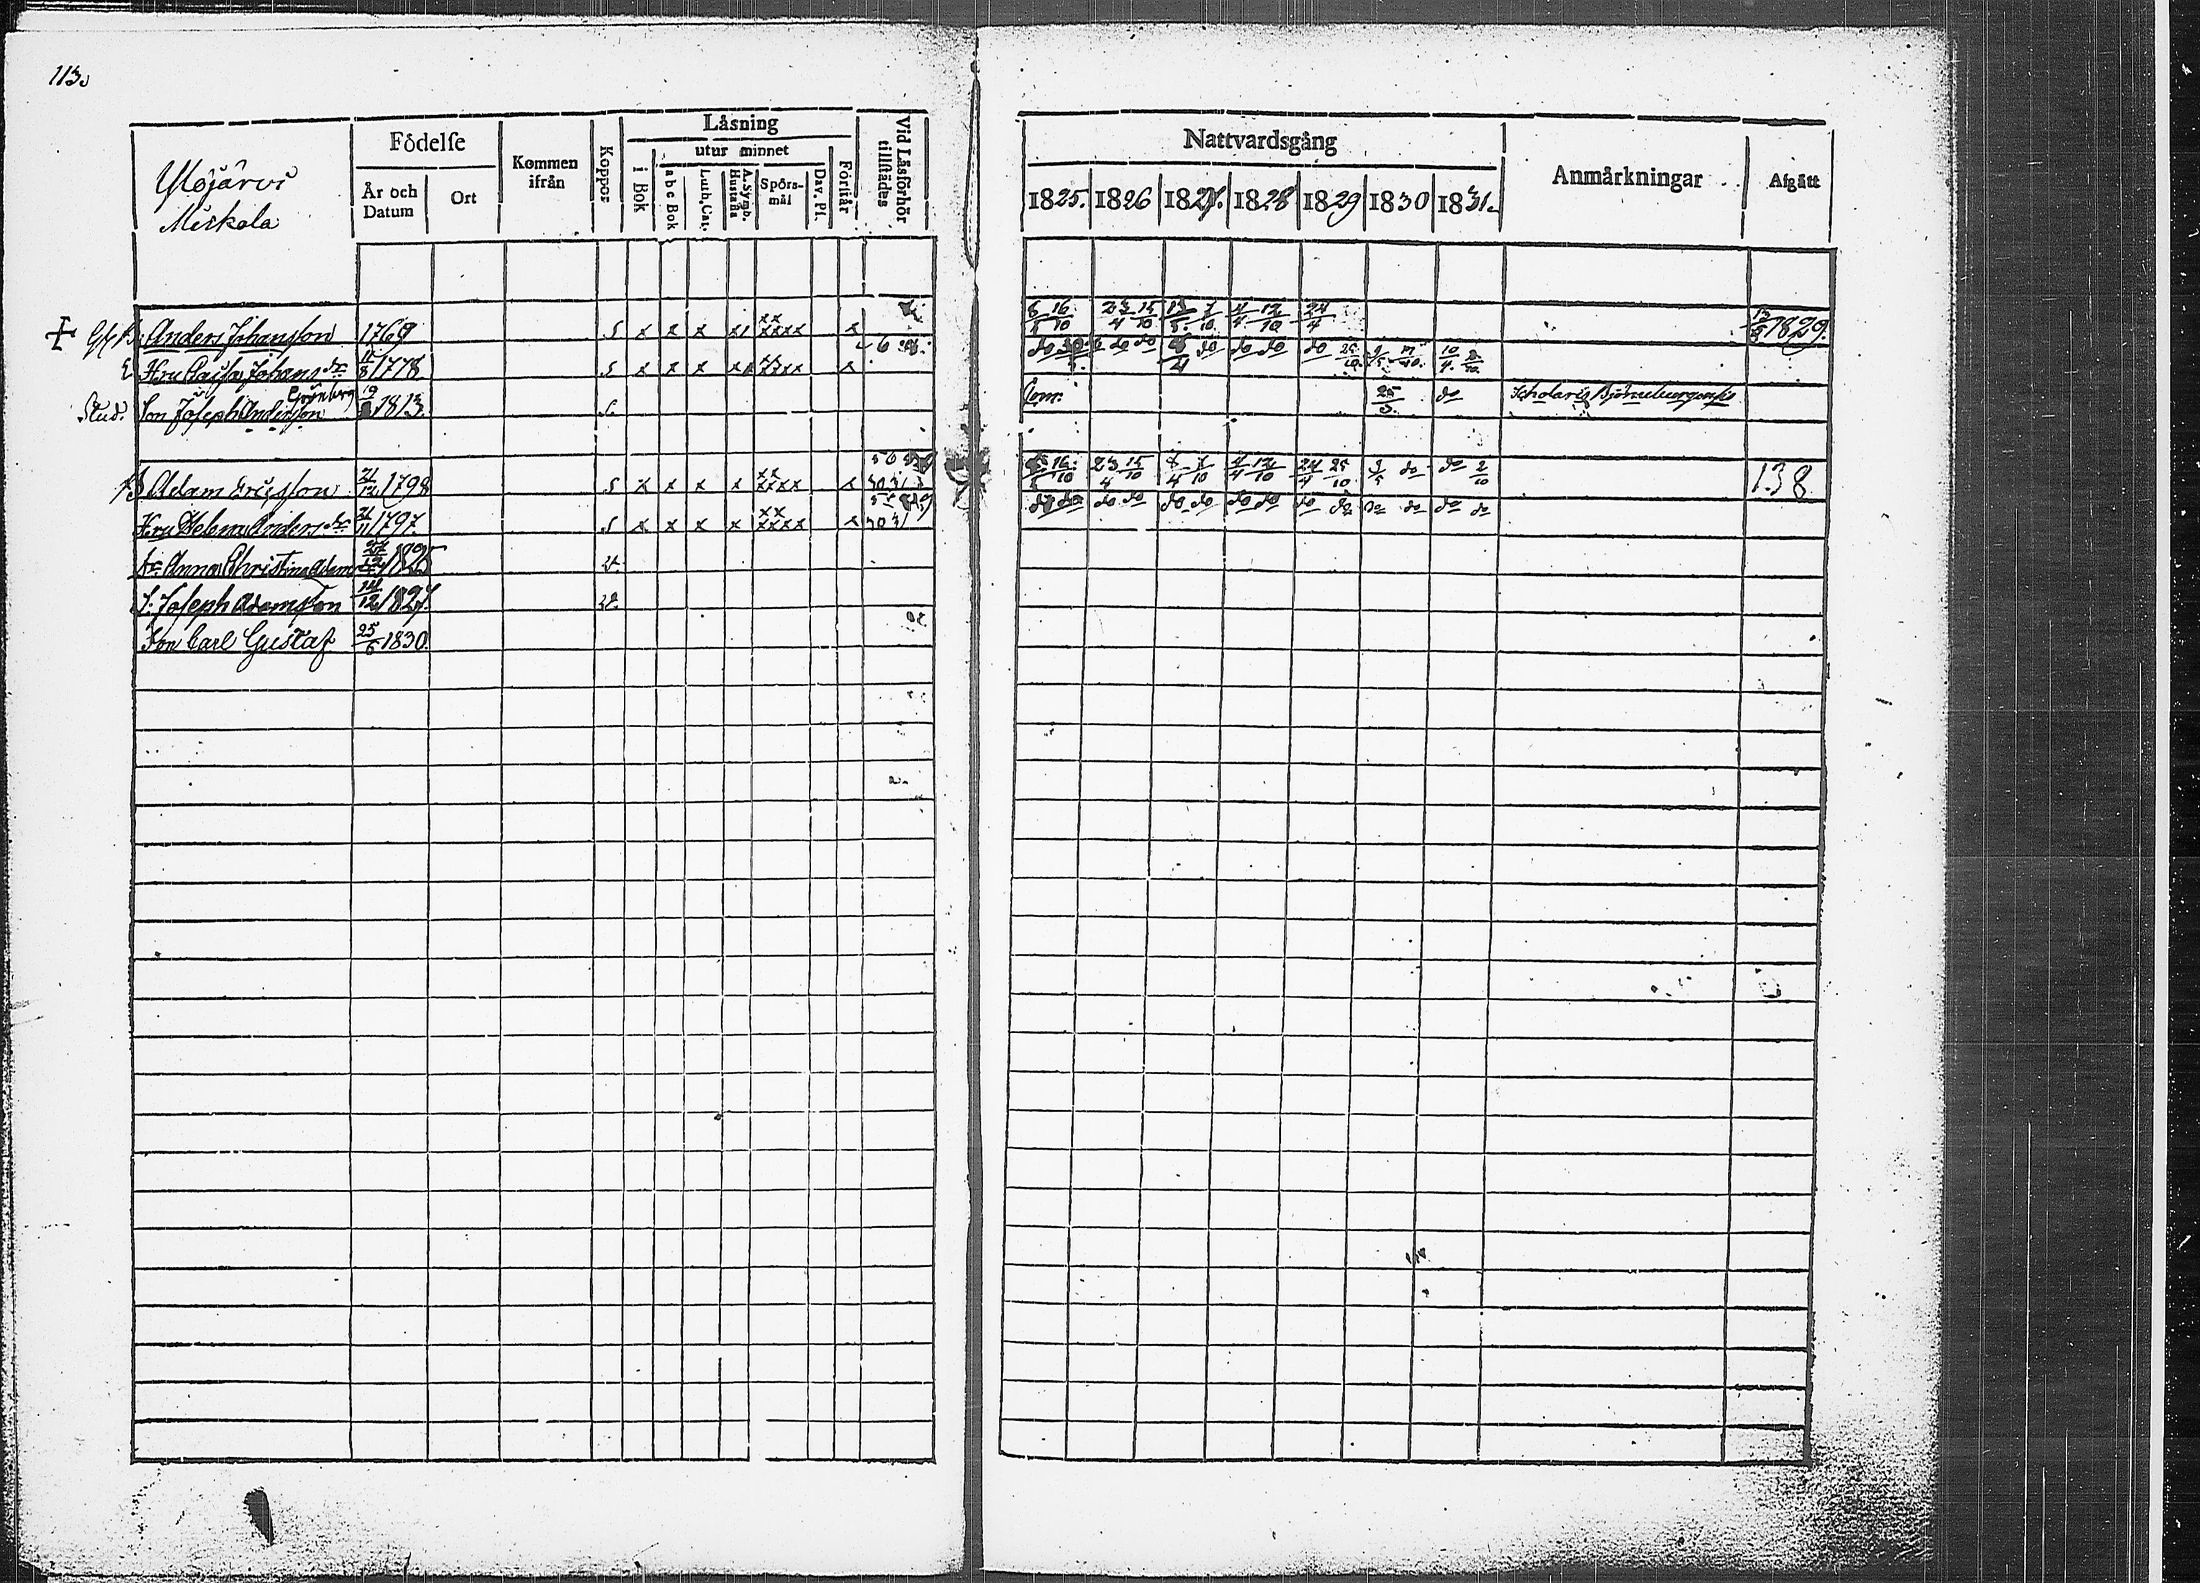 113.
Ylöjärvi
Mickola
Födelse
År och Datum
Ort
Kommen ifrån
Koppor
Läsning
i Bok
utur minnet
abc Bok
Luth. Cat.
A. Symb. Hustafla
Spörsmål
Dav. Ps.
Förstår
Vid Läsförhör tillstädes
Nattvardsgång
1825. 1826 1827. 1828 1829 1830 1831.
Anmärkningar
Afgått
Anders Johansson 1769 s x x x x1 xx xxxx x 6/5 16/10 23/4 15/10 13/5 7/10 4/4 12/10 24/4 1829.
E. Hru Caisa Johans dr 11/8 1778 s x x x do do do do do do do 10/4
Grönberg
Stud. Son Joseph Andersson 19/2 1813. s. Com. 25/3 do Scholaris Björneburgensis
Adam Ericsson 21/12 1798 s x x x x xx xxxx x 30 31 16/10 23/4 15/10 8/4 7/10 4/4 12/10 24/4 25/10 do do 2/10 138
Hru Helena Anders dr 21/11 1797. s x x x x xx xxxx x 30 31 do do do do do do do do do do do do do do
dr Anna Christina Adams dr 1825 v.
S. Joseph Adamsson 14/12 1827. v.
Son Carl Gustaf 25/6 1830.